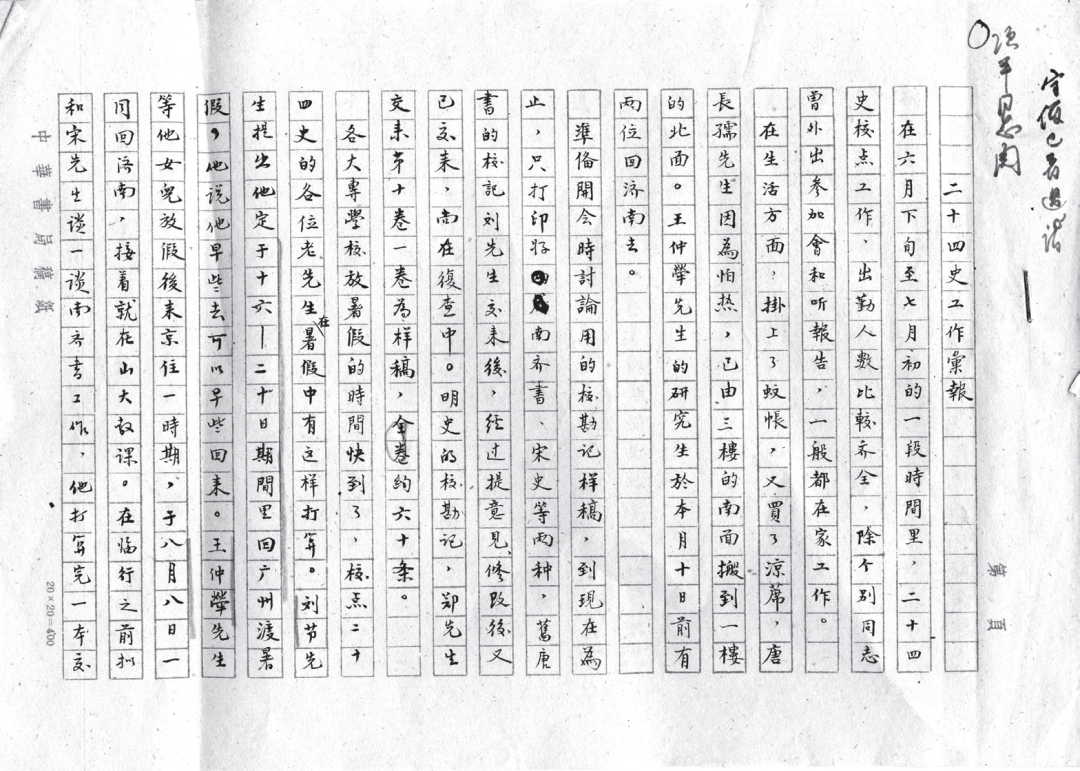 二十四史工作彙報
在六月下旬至七月初的一段時間里，二十四
史核点工作，出勤人数比較齐全，除个别同志
曾外出参加會和听報告，一般都在家工作。
在生活方面，掛上了蚊帳，又買了涼蓆，唐
長孺先生因為怕热，已由三樓的南面搬到一樓
的北面。王仲犖先生的研究生於本月十日前有
两位回济南去。
準备開会時討論用的校勘记样稿，到現在為
止，只打印好南齐書、宋史等两种，舊唐
書的校記刘先生交来後，经过提意見，修改後又
已交来，尚在復查中。明史的校勘记，鄭先生
交来第十卷一卷為样稿，全卷約六十条。
各大專學校放暑假的時間快到了，核点二十
四史的各位老先生在暑假中有这样打算。刘节先
生提出他定于十六—二十日期間里回广州渡暑
假，他说他早些去可以早些回来。王仲犖先生
等他女兒放假後来京住一時期，于八月八日一
同回济南，接着就在山大教课。在临行之前拟
和宋先生谈一谈南齐書工作，他打算完一本交
中華書局稿紙
20×20=400
第 頁